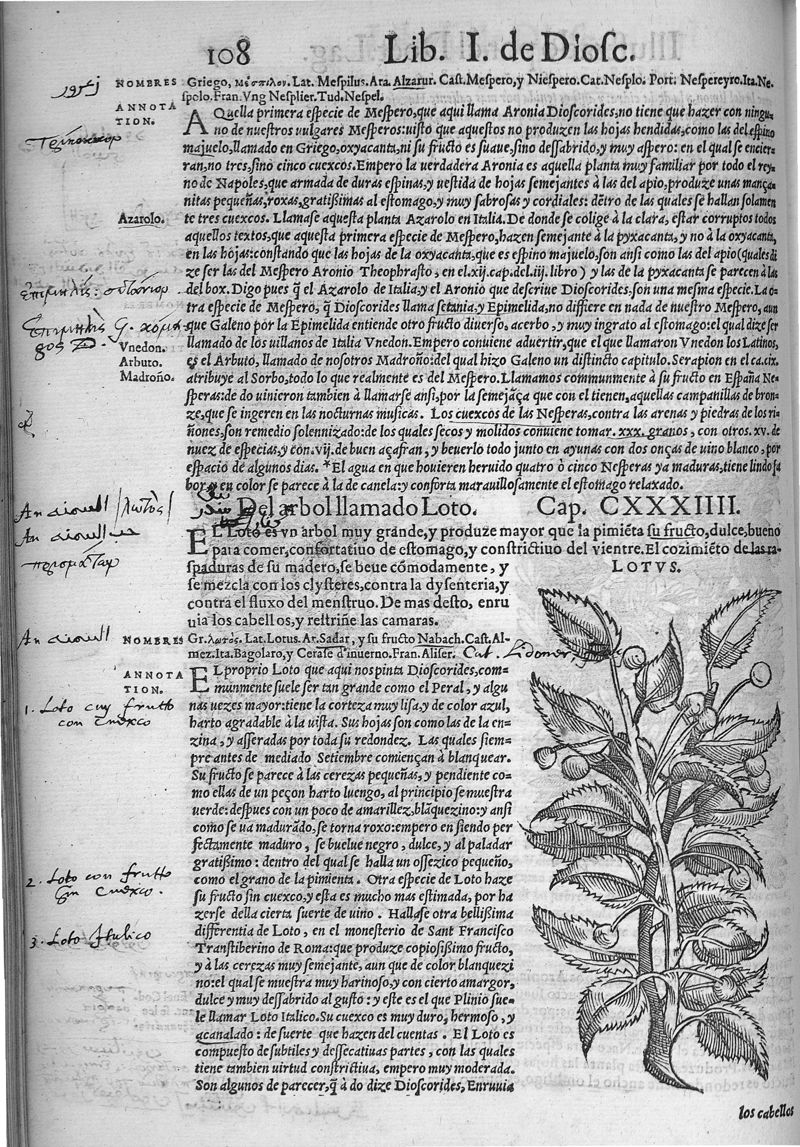 108 Lib. I. de Diosc.
NOMBRES Griego, μέσπιλον. Lat. Mespilus. Ara. Alzarur. Cast. Mespero, y Niespero. Cat. Nesplo. Port. Nespereyro. Ita. Ne-
spolo. Fran. Vng Nesplier. Tud. Nespel.
ANNOTA
TION.
AQuella primera especie de Mespero, que aqui llama Aronia Dioscorides, no tiene que hazer con ningu
no de nuestros vulgares Mesperos: uisto que aquestos no produzen las hojas hendidas, como las del espino
majuelo, llamado en Griego, oxyacanta, ni su fructo es suaue, sino dessabrido, y muy aspero: en el qual se encierra
ran, no tres, sino cinco cuexcos. Empero la verdadera Aronia es aquella planta muy familiar por todo el rey-
no de Napoles, que armada de duras espinas, y uestida de hojas semejantes à las del apio, produze unas mança
nitas pequeñas, roxas, gratißimas al estomago, y muy sabrosas y cordiales: dẽtro de las quales se hallan solamen
Azarolo. te tres cuexcos. Llamase aquesta planta Azarolo en Italia. De donde se colige à la clara, estar corruptos todos
aquellos textos, que aquesta primera especie de Mespero, hazen semejante à la pyxacanta, y no à la oxyacanta,
en las hojas: constando que las hojas de la oxyacanta, que es espino majuelo, son ansi como las del apio (quales di
ze ser las del Mespero Aronio Theophrasto, en el .xij. cap. del .iij. libro) y las de la pyxacanta se parecen à las
del box. Digo pues q̃ el Azarolo de Italia, y el Aronio que descriue Dioscorides, son una mesma especie. La o-
tra especie de Mespero, q̃ Dioscorides llama setania, y Epimelida, no differe en nada de nuestro Mespero, aun
que Galeno por la Epimelida entiende otro fructo diuerso, acerbo, y muy ingrato al estomago: el qual dize ser
Vnedon. llamado de los uillanos de Italia Vnedon. Empero conuiene aduertir, que el que llamaron Vnedon los Latinos,
Arbuto. es el Arbuto, llamado de nosotros Madroño: del qual hizo Galeno un distincto capitulo. Serapion en el ca. cix.
Madroño. atribuye al Sorbo, todo lo que realmente es del Mespero. Llamamos communmente à su fructo en España Ne-
speras: de do uinieron tambien à llamarse ansi, por la semejãça que con el tienen, aquellas campanillas de bron-
ze, que se ingeren en las nocturnas musicas. Los cuexcos de las Nesperas, contra las arenas y piedras de los ri-
ñones, son remedio solennizado: de los quales secos y molidos conuiene tomar .xxx. granos, con otros .xv. de
nuez de especias, y con .vij. de buen açafran, y beuerlo todo junto en ayunas con dos onças de uino blanco, por
espacio de algunos dias. *El agua en que houieren heruido quatro ò cinco Nesperas ya maduras, tiene lindo sa
bor, y en color se parece à la de canela: y conforta marauillosamente el estomago relaxado.
Del arbol llamado Loto. Cap. CXXXIIII.
EL Loto es vn arbol muy grande, y produze mayor que la pimiẽta su fructo, dulce, bueno
para comer, confortatiuo de estomago, y constrictiuo del vientre. El cozimiẽto de las ra-
spaduras de su madero, se beue cõmodamente, y
LOTVS.
se mezcla con los clysteres, contra la dysenteria, y
contra el fluxo del menstruo. De mas desto, enru
uia los cabellos, y restriñe las camaras.
NOMBRES Gr. λωτός. Lat. Lotus. Ar. Sadar, y su fructo Nabach. Cast. Al-
mez. Ita. Bagolaro, y Cerase d'inuerno. Fran. Aliser. Cat. Lidoner
ANNOTA
TION.
EL proprio Loto que aqui nos pinta Dioscorides, com-
munmente suele ser tan grande como el Peral, y algu
nas uezes mayor: tiene la corteza muy lisa, y de color azul,
harto agradable à la uista. Sus hojas son como las de la en-
zina, y asserradas por toda su redondez. Las quales siem-
pre antes de mediado Setiembre comiençan à blanquear.
Su fructo se parece à las cerezas pequeñas, y pendiente co-
mo ellas de un peçon harto luengo, al principio se muestra
uerde: despues con un poco de amarillez, blãquezino: y ansi
como se ua madurãdo, se torna roxo: empero en siendo per
fectamente maduro, se buelue negro, dulce, y al paladar
gratißimo: dentro del qual se halla un ossezico pequeño,
como el grano de la pimienta. Otra especie de Loto haze
su fructo sin cuexco, y esta es mucho mas estimada, por ha
zerse della cierta suerte de uino. Hallase otra bellißima
differentia de Loto, en el monesterio de Sant Francisco
Transtiberino de Roma: que produze copiosißimo fructo,
y à las cerezas muy semejante, aun que de color blanquezi
no: el qual se muestra muy harinoso, y con cierto amargor,
dulce y muy dessabrido al gusto: y este es el que Plinio sue-
le llamar Loto Italico. Su cuexco es muy duro, hermoso, y
acanalado: de suerte que hazen del cuentas. El Loto es
compuesto de subtiles y dessecatiuas partes, con las quales
tiene tambien uirtud constrictiua, empero muy moderada.
Son algunos de parecer, q̃ à do dize Dioscorides, Enruuia
los cabellos
1. Loto cuy frutto
con Cuexco
2. Loto con frutto
sin Cuexco.
3. Loto Italico